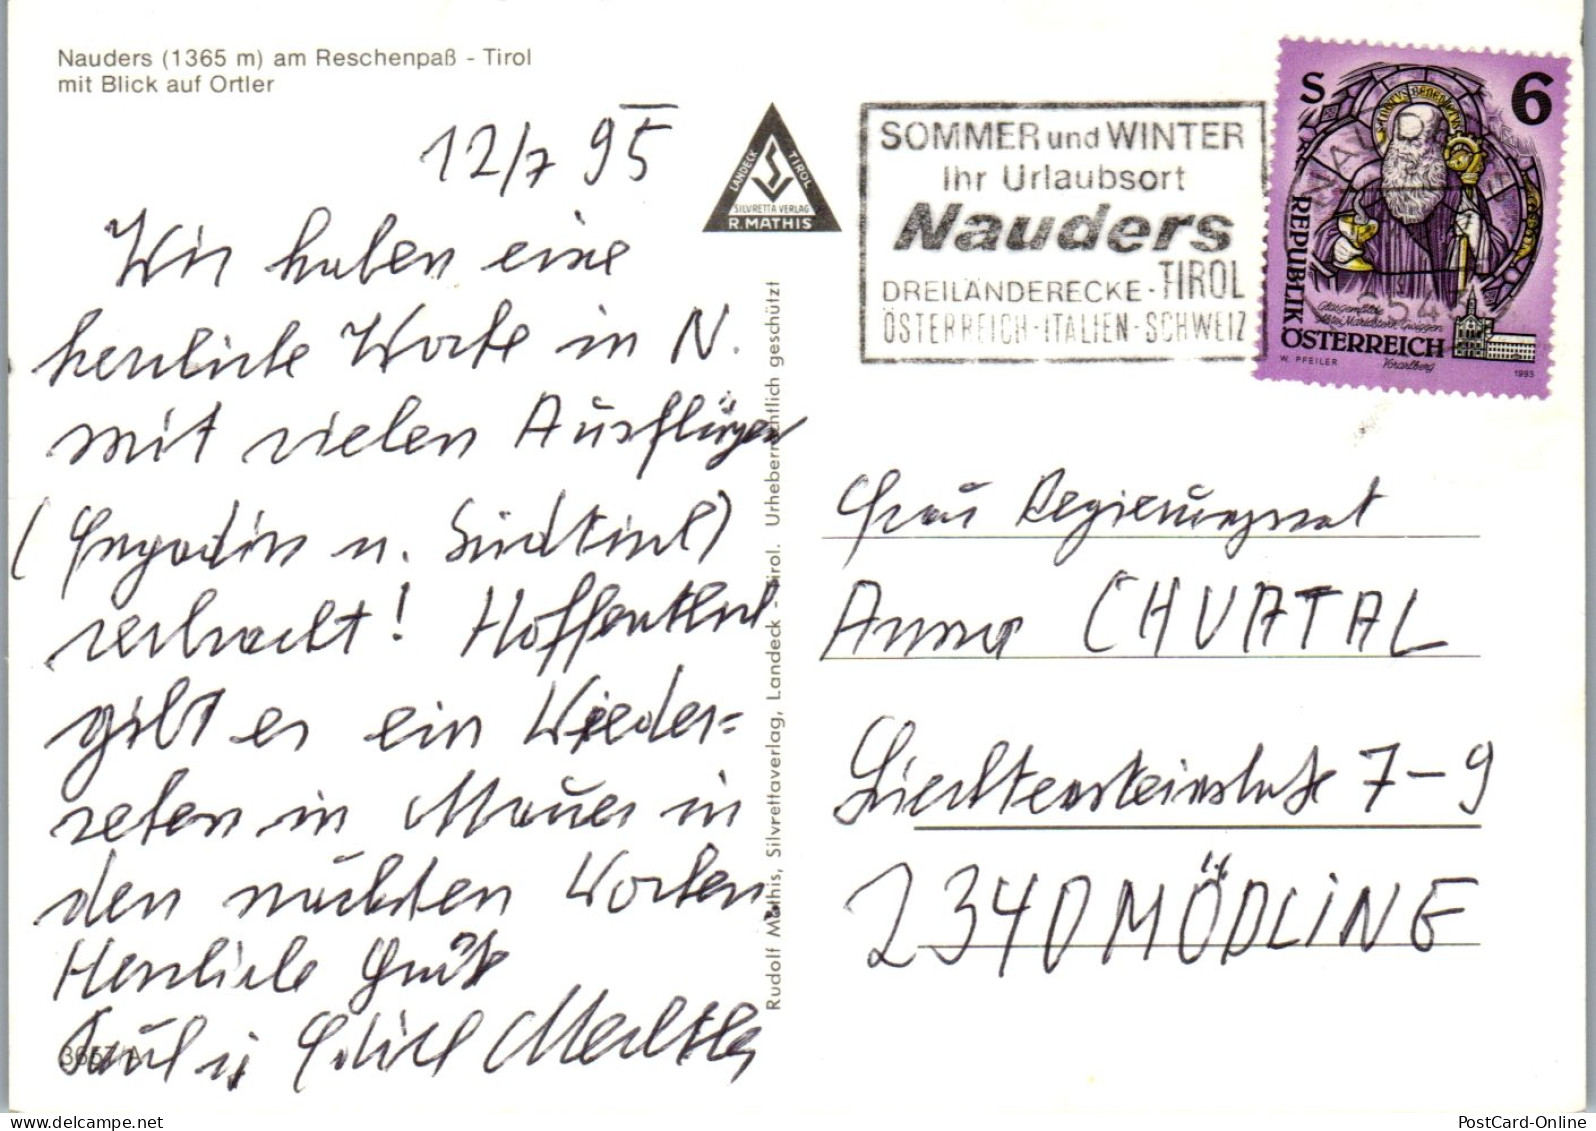 Nauders (1365 m) am Reschenpaß - Tirol
mit Blick auf Ortler
12/7 95
Wir haben eine
herrliche Woche in N.
mit vielen Ausflügen
(Engadin u. Südtirol)
verbracht! Hoffentlich
gibt es ein Wieder=
sehen in Mauer in
den nächsten Wochen
Herzliche Grüße
Paul u Edith
3657/A
LANDECK TIROL
SILVRETTA VERLAG
R. MATHIS
Rudolf Mathis, Silvrettaverlag, Landeck - Tirol. Urheberrechtlich geschützt
SOMMER und WINTER
Ihr Urlaubsort
Nauders
DREILÄNDERECKE-TIROL
ÖSTERREICH-ITALIEN-SCHWEIZ
S 6
REPUBLIK ÖSTERREICH
W. PFEILER
Vorarlberg
1993
Frau Regierungsrat
Anna CHVATAL
Liechtensteinstraße 7-9
2340 MÖDLING
PostCard-Online